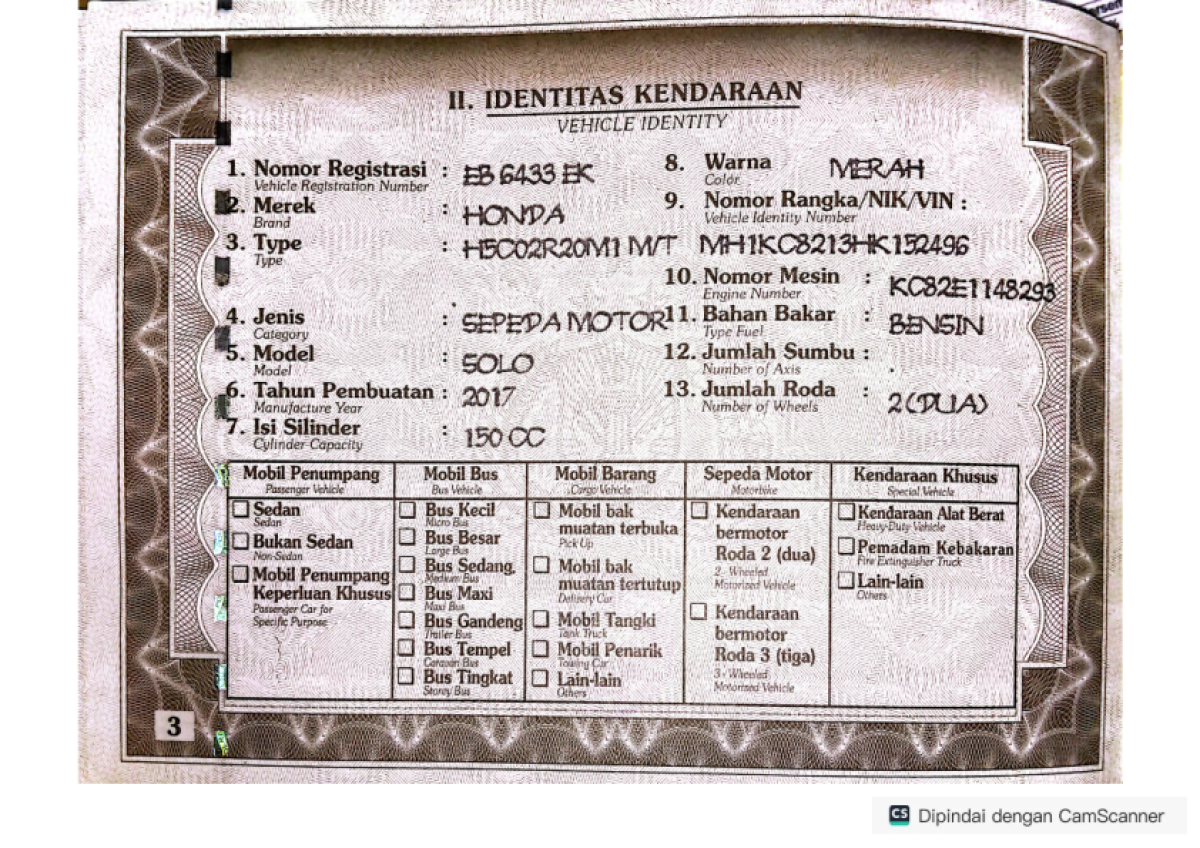 II. IDENTITAS KENDARAAN
VEHICLE IDENTITY
1. Nomor Registrasi : EB 6433 EK
Vehicle Registration Number
2. Merek : HONDA
Brand
3. Type : H5C02R20M1 M/T
Type
4. Jenis : SEPEDA MOTOR
Category
5. Model : SOLO
Model
6. Tahun Pembuatan : 2017
Manufacture Year
7. Isi Silinder : 150 CC
Cylinder Capacity
8. Warna MERAH
Color
9. Nomor Rangka/NIK/VIN :
Vehicle Identity Number
MH1KC8213HK152496
10. Nomor Mesin : KC82E1148293
Engine Number
11. Bahan Bakar : BENSIN
Type Fuel
12. Jumlah Sumbu :
Number of Axis
13. Jumlah Roda : 2 (DUA)
Number of Wheels
Mobil Penumpang
Passenger Vehicle
Sedan
Sedan
Bukan Sedan
Non-Sedan
Mobil Penumpang
Keperluan Khusus
Passenger Car for
Specific Purpose
Mobil Bus
Bus Vehicle
Bus Kecil
Micro Bus
Bus Besar
Large Bus
Bus Sedang
Medium Bus
Bus Maxi
Maxi Bus
Bus Gandeng
Trailer Bus
Bus Tempel
Caravan Bus
Bus Tingkat
Storey Bus
Mobil Barang
Cargo Vehicle
Mobil bak
muatan terbuka
Pick Up
Mobil bak
muatan tertutup
Delivery Car
Mobil Tangki
Tank Truck
Mobil Penarik
Towing Car
Lain-lain
Others
Sepeda Motor
Motorbike
Kendaraan
bermotor
Roda 2 (dua)
2 - Wheeled
Motorized Vehicle
Kendaraan
bermotor
Roda 3 (tiga)
3 - Wheeled
Motorized Vehicle
Kendaraan Khusus
Special Vehicle
Kendaraan Alat Berat
Heavy-Duty Vehicle
Pemadam Kebakaran
Fire Extinguisher Truck
Lain-lain
Others
3
CS Dipindai dengan CamScanner